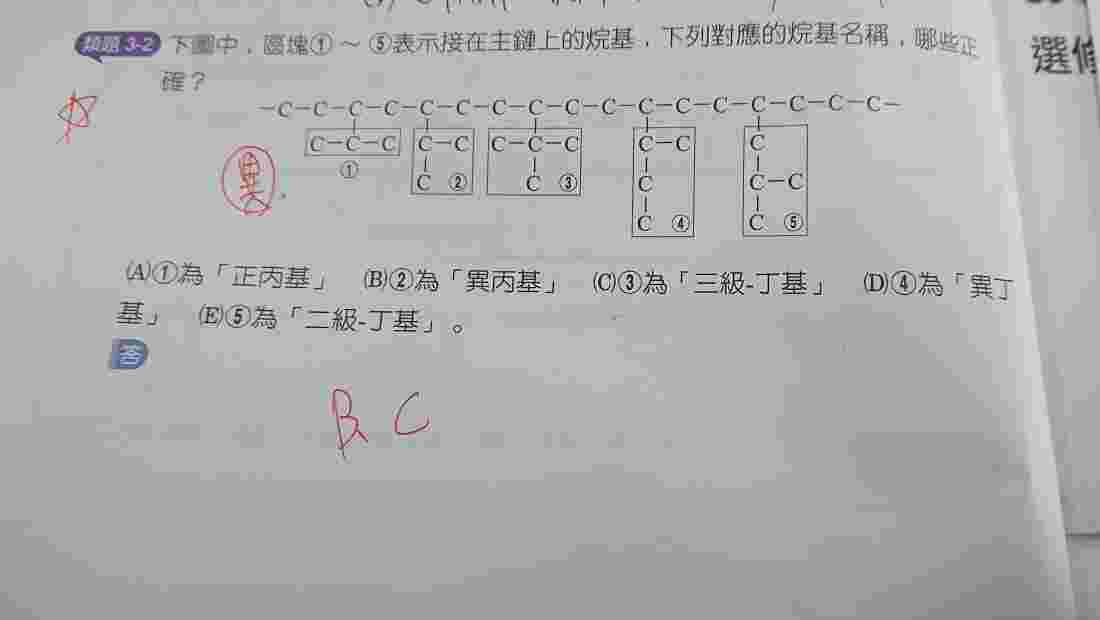 類題 3-2 下圖中，區塊① ～ ⑤表示接在主鏈上的烷基，下列對應的烷基名稱，哪些正
確？
選修
－C－C－C－C－C－C－C－C－C－C－C－C－C－C－C－C－C－
C－C－C C－C C－C－C C－C C
① C ② C ③ C C－C
C ④ C ⑤
異
(A)①為「正丙基」 (B)②為「異丙基」 (C)③為「三級-丁基」 (D)④為「異丁
基」 (E)⑤為「二級-丁基」。
答
B C